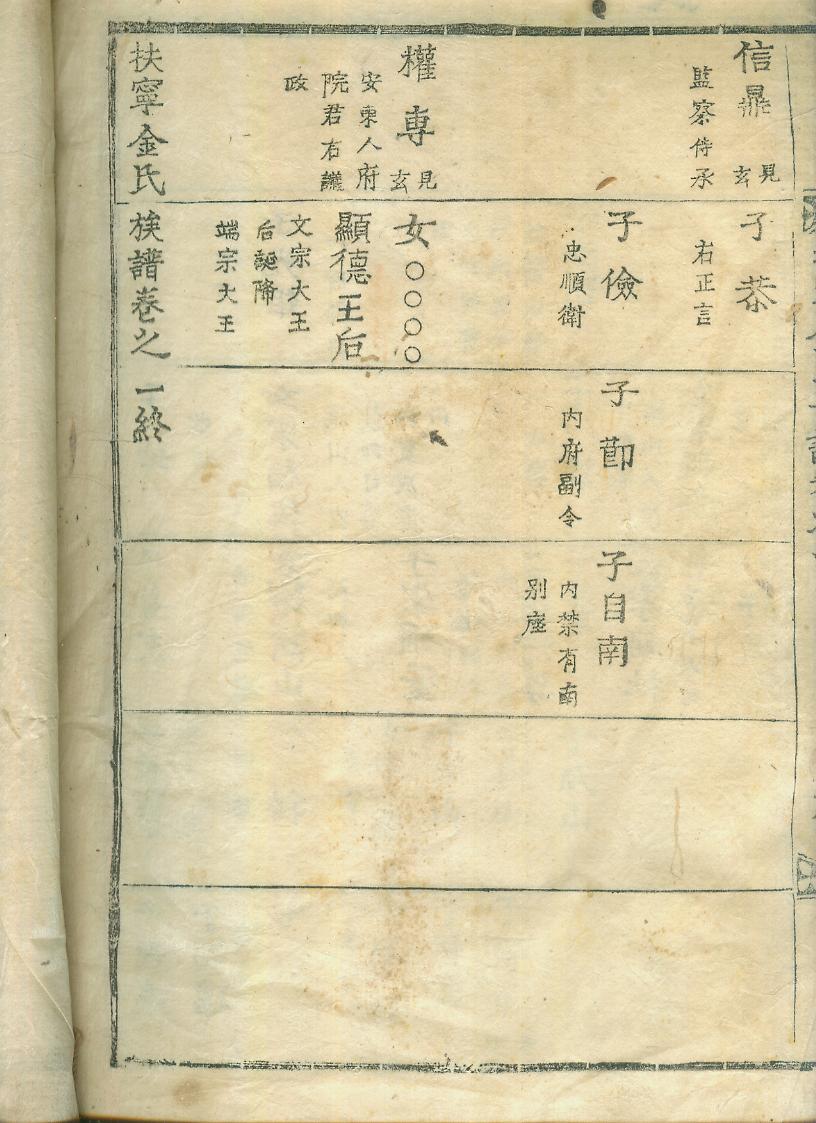 信鼎
見玄
監察侍丞
權專
見玄
安東人府
院君右議
政
子恭
右正言
子儉
忠順衛
女○○○○
顯德王后
文宗大王
后誕降
端宗大王
子節
內府副令
子自南
內禁有南
別座
扶寧金氏族譜卷之一終